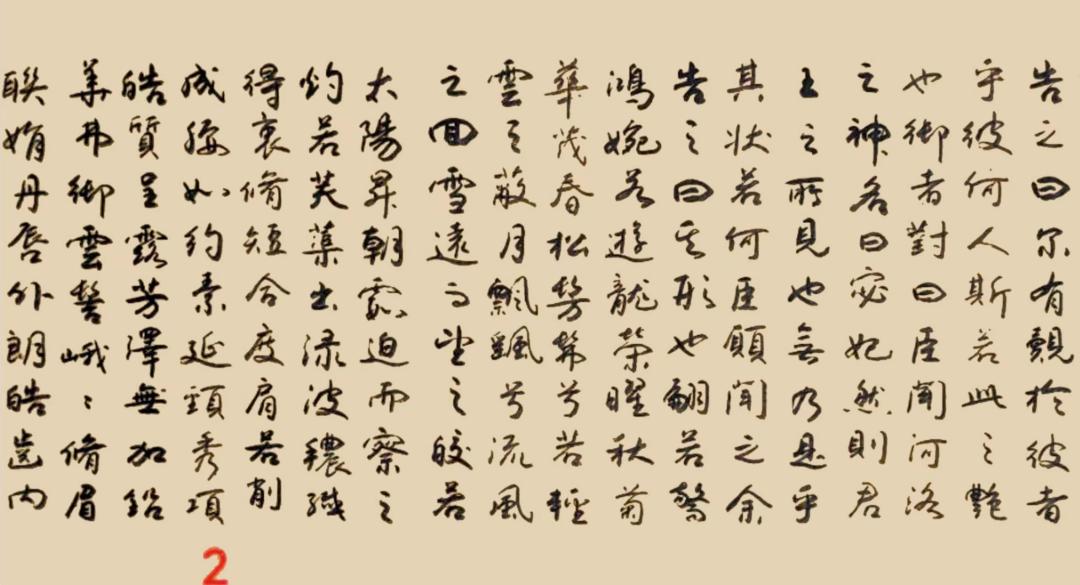 告之曰尔有覿於彼者
乎彼何人斯若此之艷
也御者對曰臣聞河洛
之神名曰宓妃然則君
王之所見也無乃是乎
其狀若何臣願聞之余
告之曰其形也翩若驚
鴻婉若遊龍榮曜秋菊
華茂春松髣髴兮若輕
雲之蔽月飄颻兮流風
之回雪遠而望之皎若
太陽昇朝霞迫而察之
灼若芙蕖出渌波穠纖
得衷脩短合度肩若削
成腰如約素延頸秀項
皓質呈露芳澤無加鉛
華弗御雲髻峨〻脩眉
聯娟丹唇外朗皓齒内
2